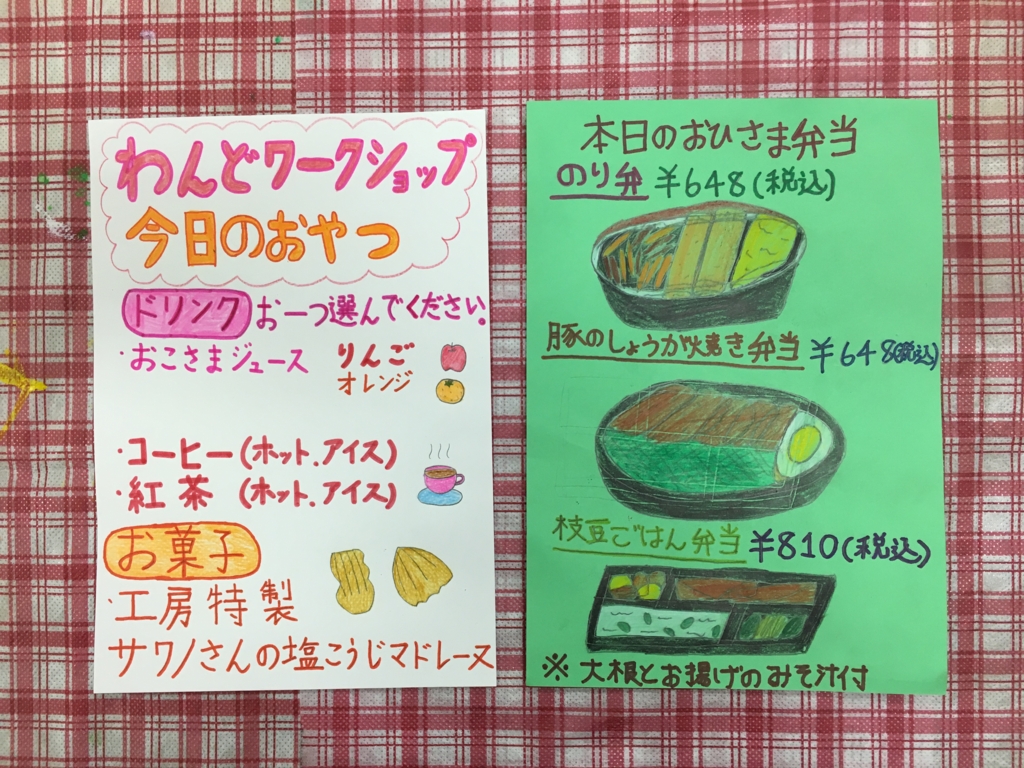 わんどワークショップ
今日のおやつ
ドリンク お一つ選んでください。
・おこさまジュース りんご
オレンジ
・コーヒー(ホット.アイス)
・紅茶 (ホット.アイス)
お菓子
・工房特製
サワノさんの塩こうじマドレーヌ
本日のおひさま弁当
のり弁 ¥648(税込)
豚のしょうが焼き弁当 ¥648(税込)
枝豆ごはん弁当 ¥810(税込)
※ 大根とお揚げのみそ汁付